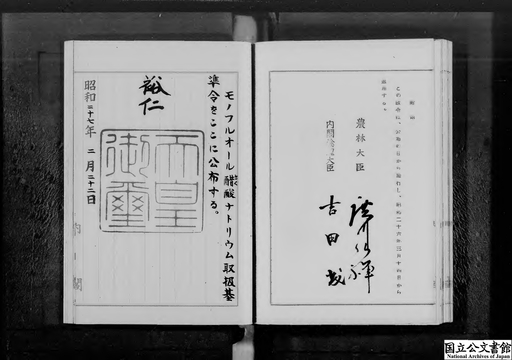 附則
この政令は、公布の日から施行し、昭和二十六年三月十四日から
適用する。
農林大臣
内閣総理大臣
吉田茂
モノフルオール醋酸ナトリウム取扱基
準令をここに公布する。
裕仁
天皇御璽
昭和二十七年 二月二十二日
内閣
国立公文書館
National Archives of Japan